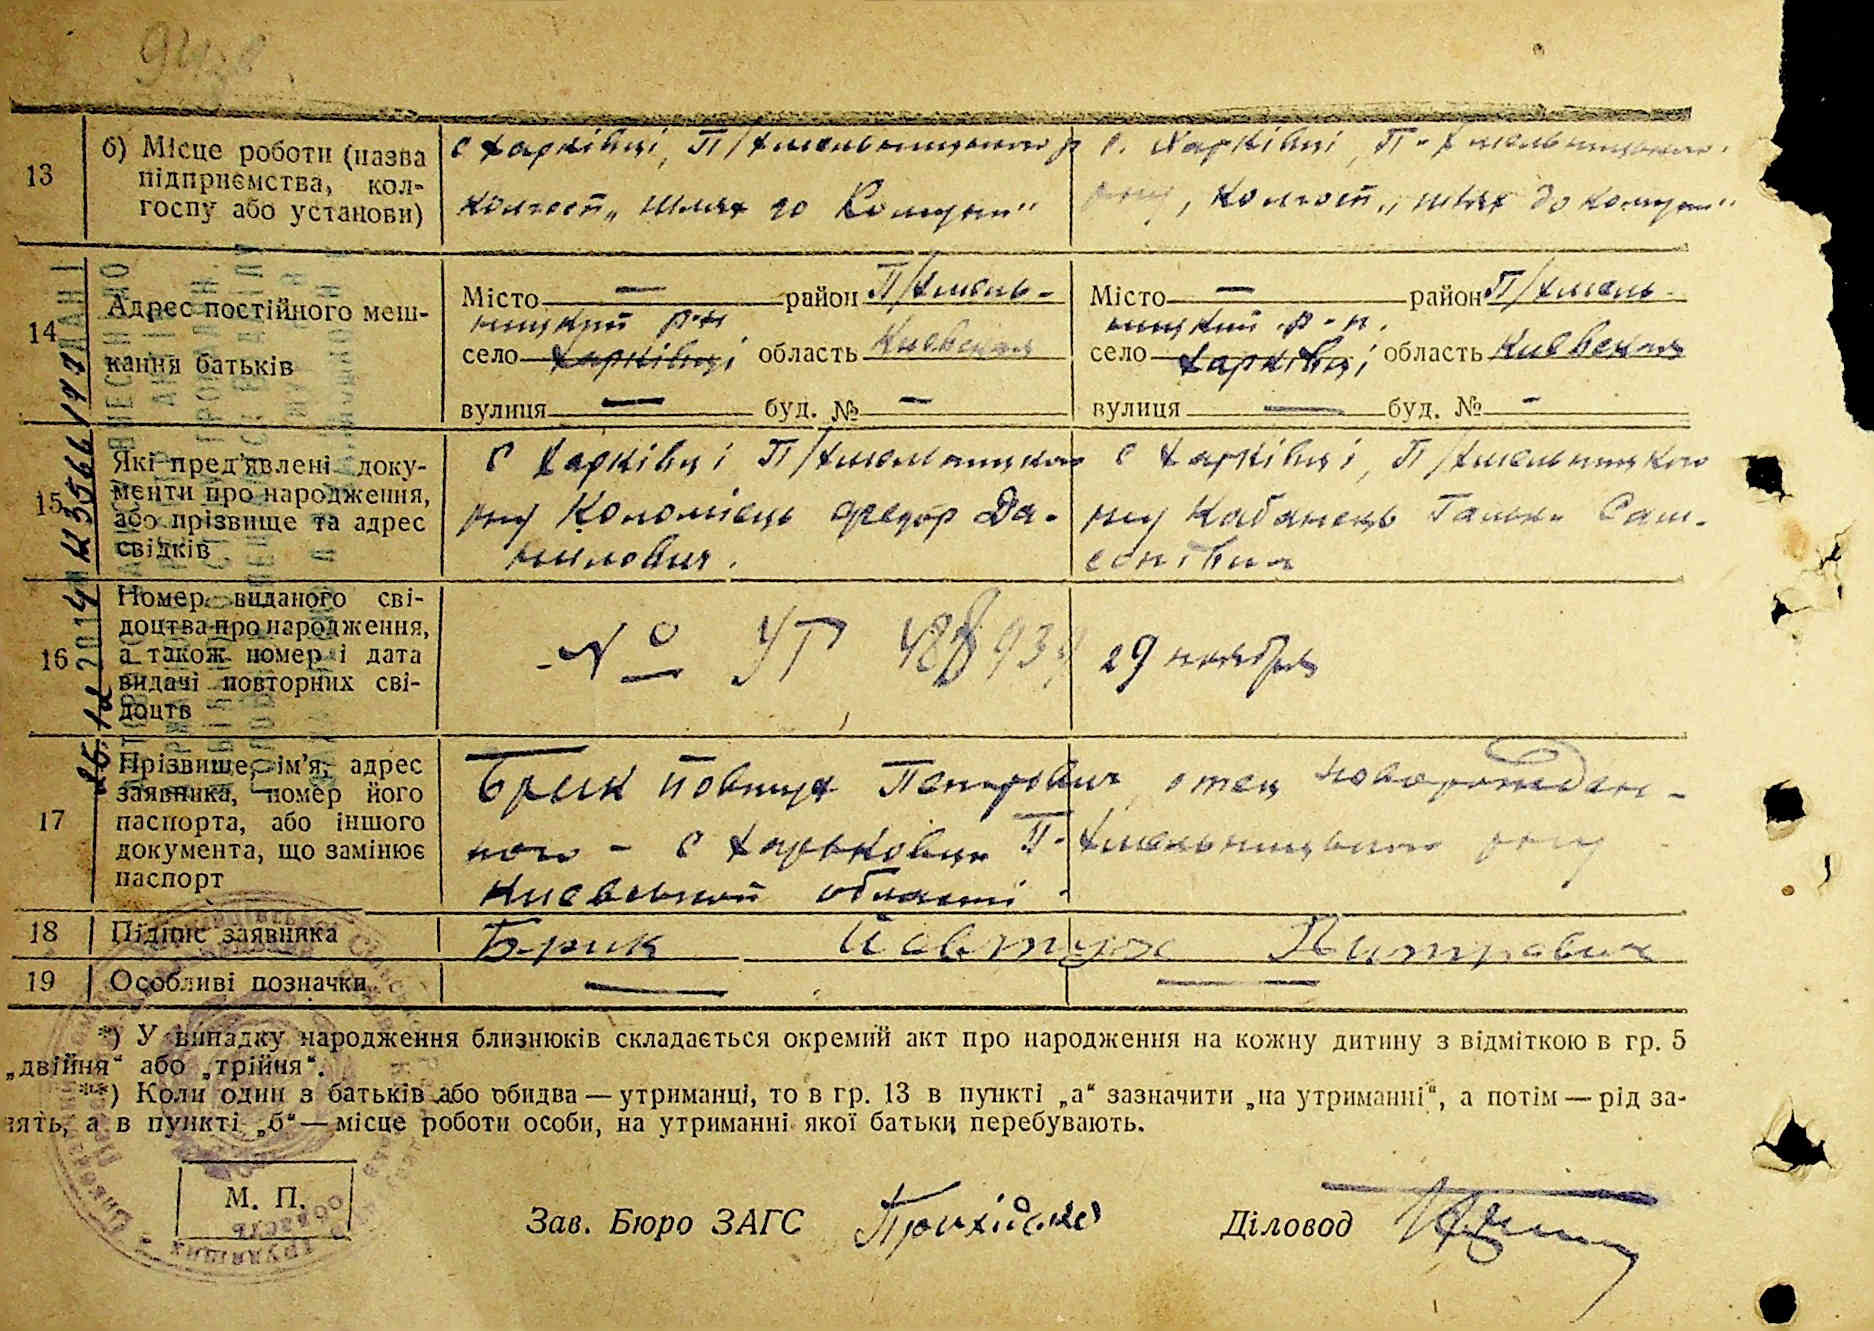 13
б) Місце роботи (назва підприємства, кол-
госпу або установи)
с Харківці, П/Хмельницького р
колгосп „Шлях до Комуни“
с. Харківці, П-Хмельницького
р-ну, колгосп „Шлях до комуни“
14
Адрес постійного меш-
кання батьків
Місто — район П/Хмель-
ницкий р-н
село Харківці область Киевская
вулиця — буд. № —
Місто — район П/Хмель-
ницкий р-н.
село Харківці область Киевская
вулиця — буд. № —
15
Які пред'явлені доку-
менти про народження,
або прізвище та адрес
свідків
с Харківці П/Хмельницкого
р-ну Коломієць Федор Да-
нилович.
с Харківці, П/Хмельницкого
р-ну Кабанець Галька
16
Номер виданого сві-
доцтва про народження,
а також номер і дата
видачі повторних сві-
доцтв
№ УГ
29 ноября
17
Прізвище, ім'я, адрес
заявника, номер його
паспорта, або іншого
документа, що замінює
паспорт
Брик Йовтух Петрович, отец новорожден-
ного - с Харьковци П-Хмельницкого р-ну
Киевской області
18
Підпис заявника
Брик Йовтух Питрович
19
Особливі позначки
— —
*) У випадку народження близнюків складається окремий акт про народження на кожну дитину з відміткою в гр. 5
„двійня“ або „трійня“.
**) Коли один з батьків або обидва — утриманці, то в гр. 13 в пункті „а“ зазначити „на утриманні“, а потім — рід за-
нять, а в пункті „б“ — місце роботи особи, на утриманні якої батьки перебувають.
М. П.
Зав. Бюро ЗАГС
Діловод